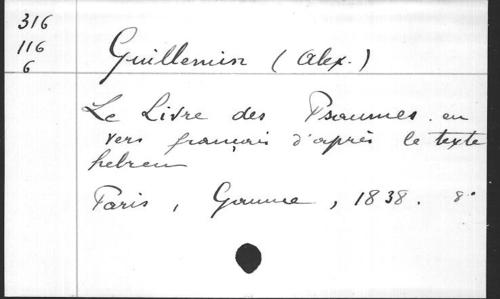 316
116
6
Guillemin (Alex.)
Le Livre des Psaumes. en
vers français d'après le texte
hebreu
Paris, Gaume, 1838. 8°